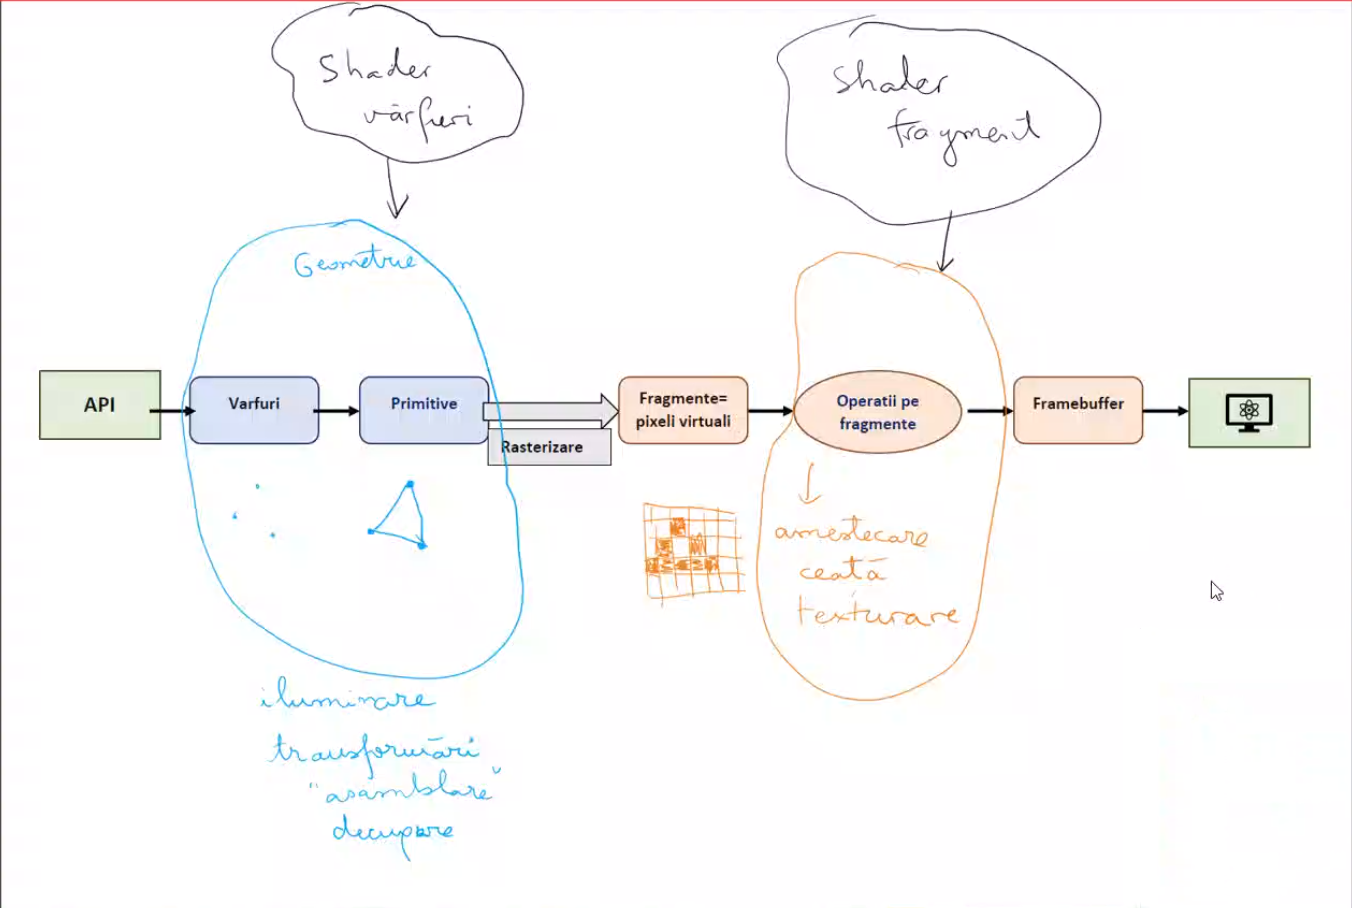 Shader
vârfuri
Shader
fragment
Geometrie
API
Varfuri
Primitive
Rasterizare
Fragmente=
pixeli virtuali
Operatii pe
fragmente
Framebuffer
amestecare
ceată
texturare
iluminare
transformări
"asamblare"
decupare